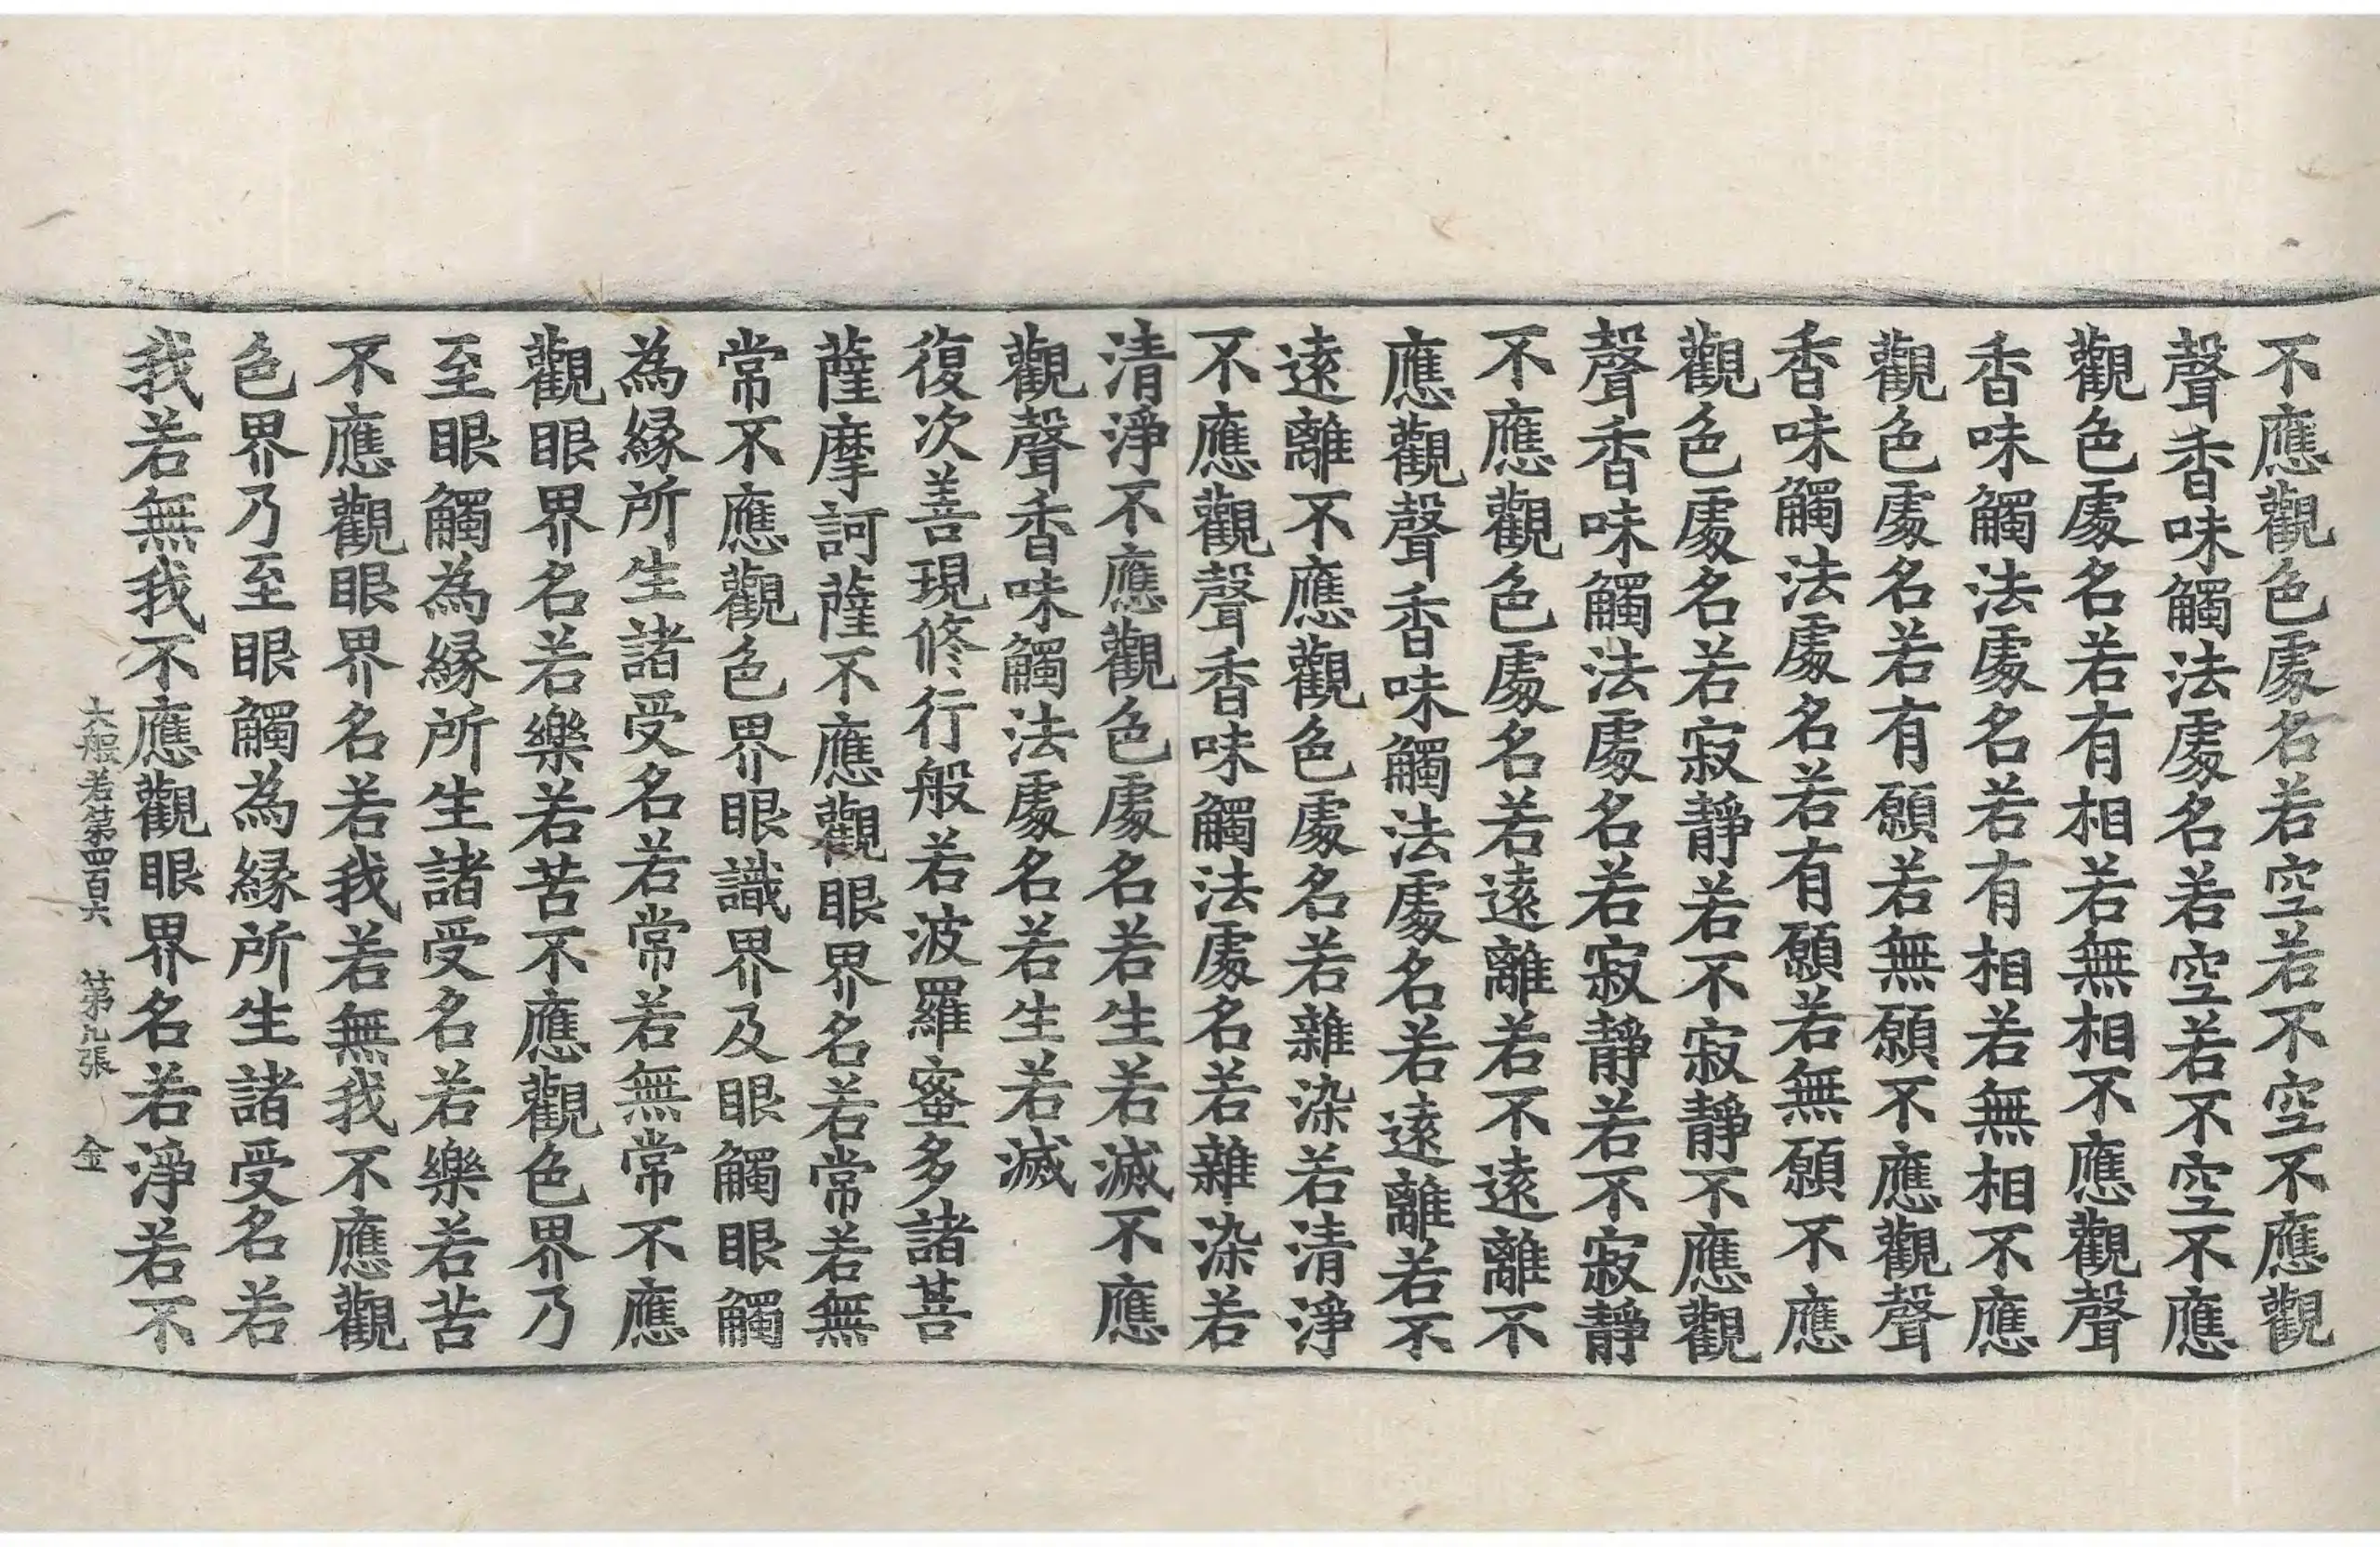 不應觀色處名若空若不空不應觀
聲香味觸法處名若空若不空不應
觀色處名若有相若無相不應觀聲
香味觸法處名若有相若無相不應
觀色處名若有願若無願不應觀聲
香味觸法處名若有願若無願不應
觀色處名若寂靜若不寂靜不應觀
聲香味觸法處名若寂靜若不寂靜
不應觀色處名若遠離若不遠離不
應觀聲香味觸法處名若遠離若不
遠離不應觀色處名若雜染若清淨
不應觀聲香味觸法處名若雜染若
清淨不應觀色處名若生若滅不應
觀聲香味觸法處名若生若滅
復次善現修行般若波羅蜜多諸菩
薩摩訶薩不應觀眼界名若常若無
常不應觀色界眼識界及眼觸眼觸
為緣所生諸受名若常若無常不應
觀眼界名若樂若苦不應觀色界乃
至眼觸為緣所生諸受名若樂若苦
不應觀眼界名若我若無我不應觀
色界乃至眼觸為緣所生諸受名若
我若無我不應觀眼界名若淨若不
大般若第四百六 第九張 金